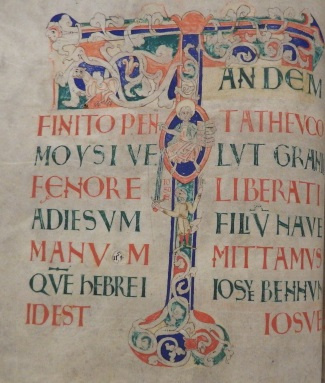 TANDEM
FINITO PENTATHEUCO
MOYSI VELVT GRANI
FENORE LIBERATI
AD IESVM FILIV̄ NAVE
MANVM MITTAMVS
QVĒ HEBREI IOSVE BENNVN
ID EST IOSVE